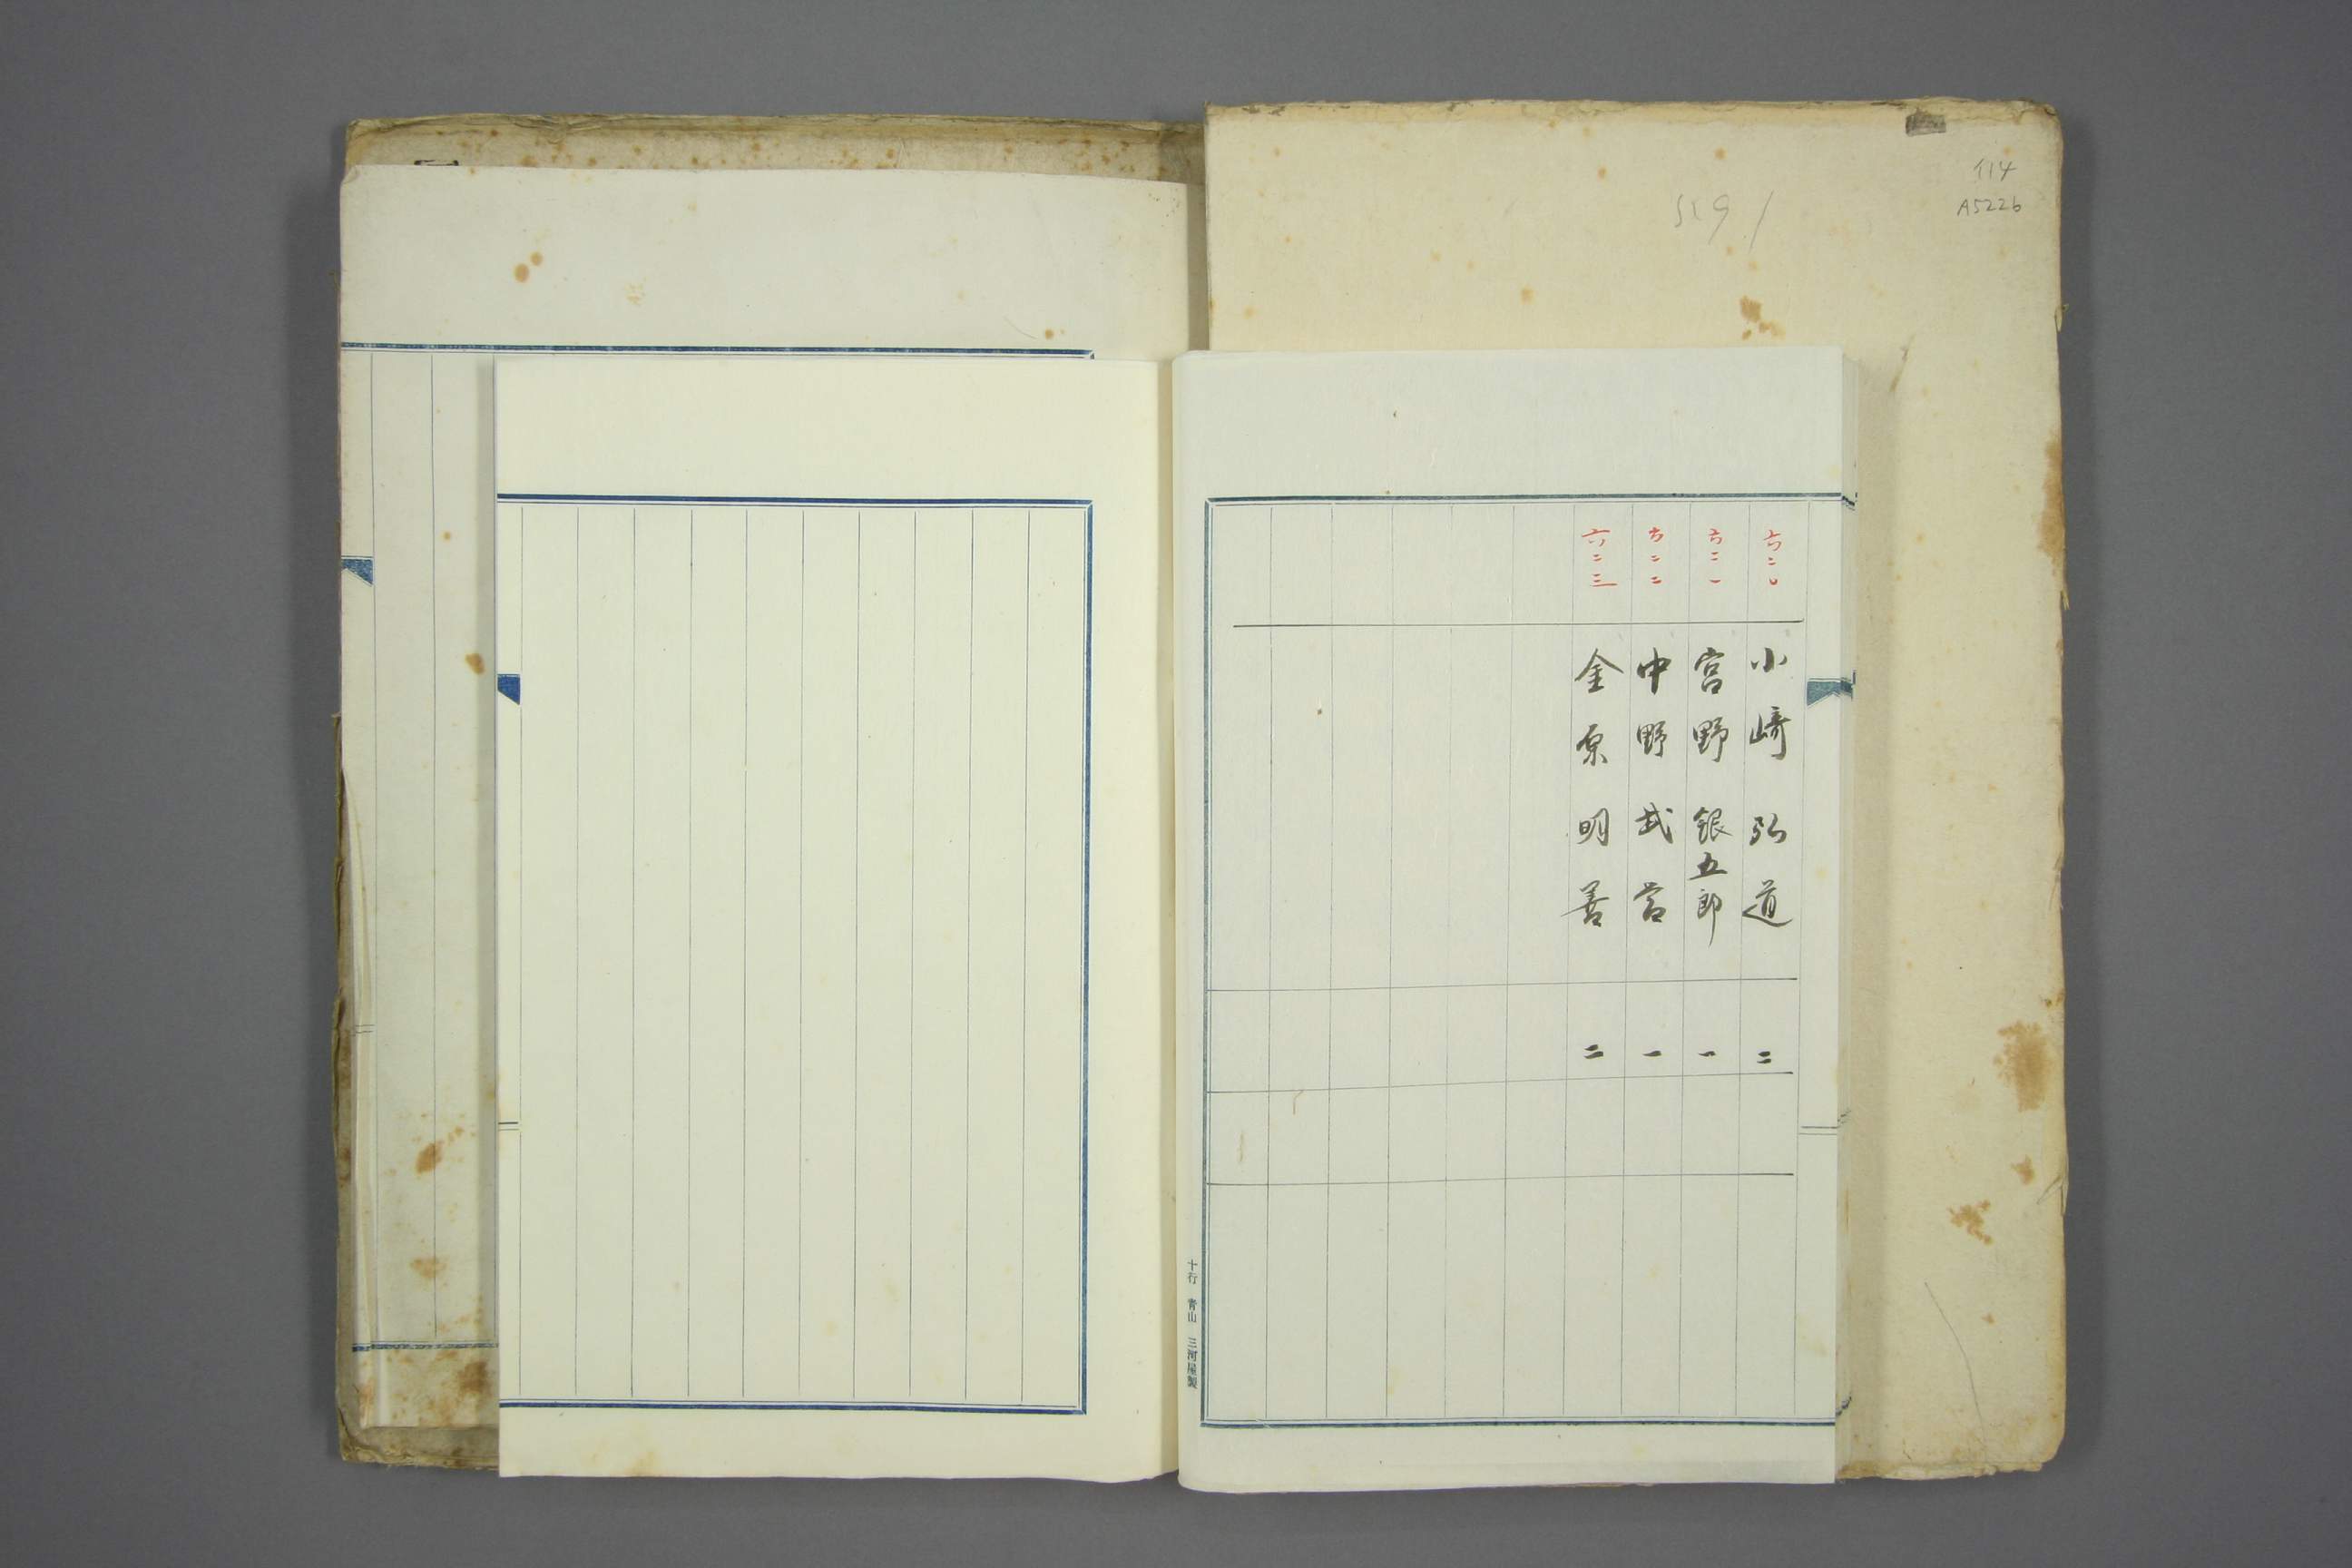 114
A5226
六二〇
小﨑弘道
二
六二一
宮野銀五郎
一
六二二
中野武営
一
六二三
金原明善
二
十行 青山 三河屋製